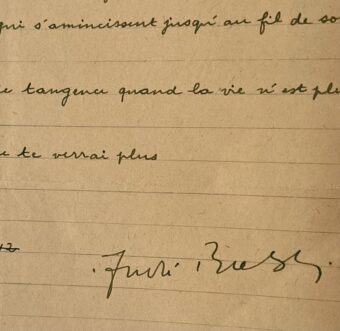 qui s'amincissent jusqu'au fil de so
e tangence quand la vie n'est plu
te verrai plus
André Breton.